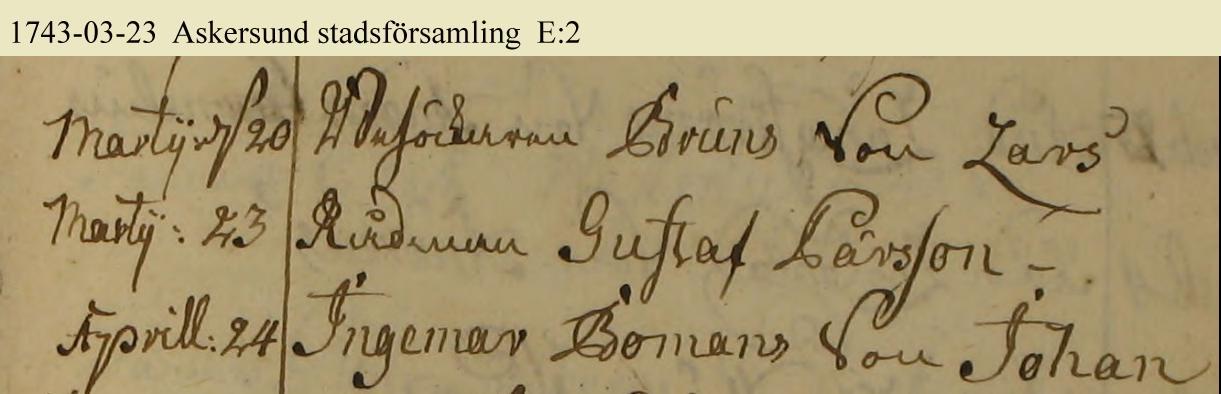 1743-03-23 Askersund stadsförsamling E:2
Martij 20 Besökaren Bruns Son Lars
Martij: 23 Rådman Gustaf Larsson -
Aprill: 24 Ingemar Bomans Son Johan